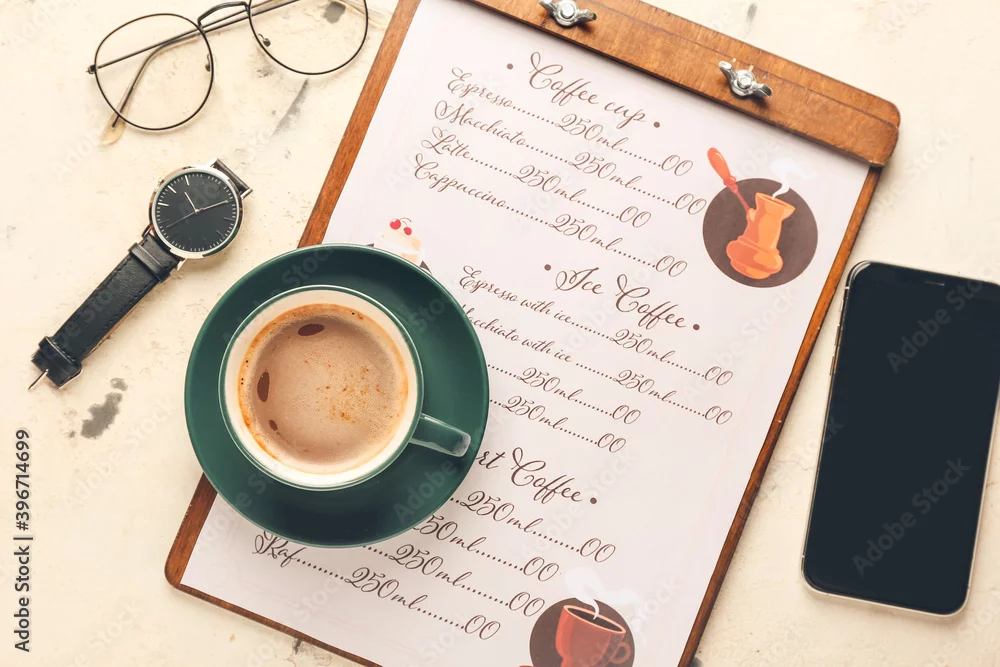 • Coffee cup •
Espresso..........250ml..............00
Macchiato..........250ml..............00
Latte..........250ml..............00
Cappuccino..........250ml..............00
• Ice Coffee •
Espresso with ice..........250ml..............00
acchiato with ice..........250ml..............00
250ml..............00
250ml..............00
rt Coffee •
250ml..............00
250ml..............00
250ml..............00
Raf..........250ml..............00
Adobe Stock
#396714699